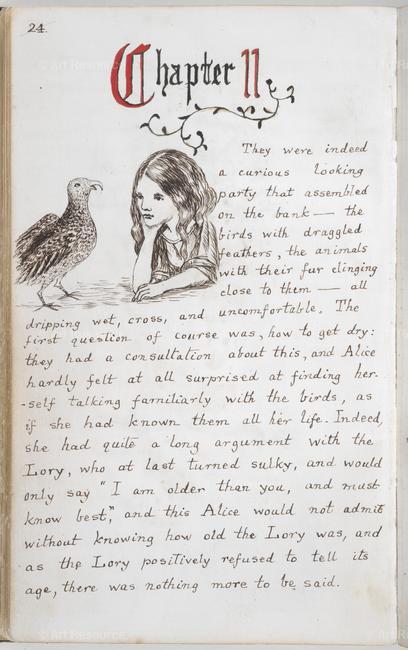 24.
Chapter II
They were indeed
a curious looking
party that assembled
on the bank — the
birds with draggled
feathers, the animals
with their fur clinging
close to them — all
dripping wet, cross, and uncomfortable. The
first question of course was, how to get dry:
they had a consultation about this, and Alice
hardly felt at all surprised at finding her-
-self talking familiarly with the birds, as
if she had known them all her life. Indeed,
she had quite a long argument with the
Lory, who at last turned sulky, and would
only say "I am older than you, and must
know best," and this Alice would not admit
without knowing how old the Lory was, and
as the Lory positively refused to tell its
age, there was nothing more to be said.
© Art Resource